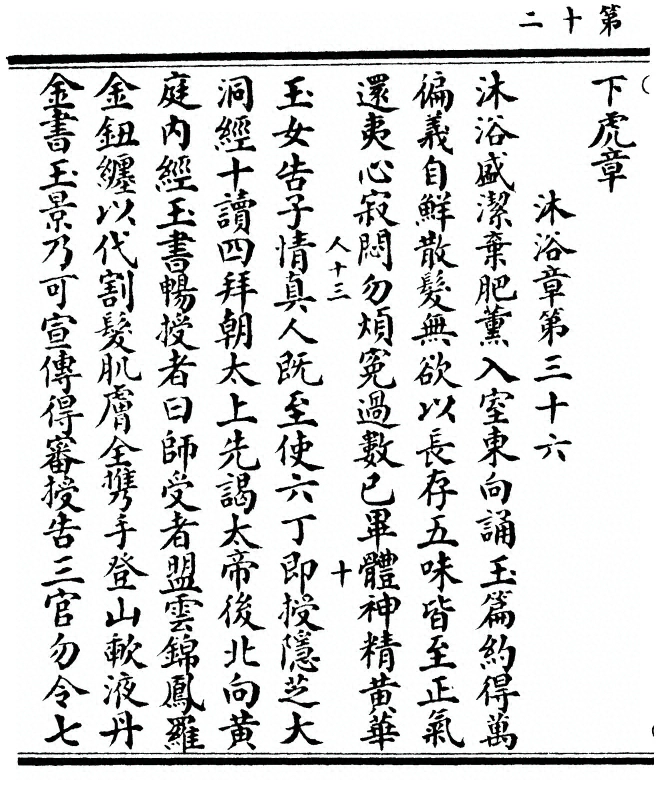 第十二
下虎章
沐浴章第三十六
沐浴盛潔棄肥薰入室東向誦玉篇約得萬
偏義自鮮散髮無欲以長存五味皆至正氣
還夷心寂悶勿煩冤過數已畢體神精黃華
人十三
十
玉女告子情真人既至使六丁即授隱芝大
洞經十讀四拜朝太上先謁太帝後北向黃
庭內經玉書暢授者曰師受者盟雲錦鳳羅
金鈕纏以代割髮肌膚全携手登山歃液丹
金書玉景乃可宣傳得審授告三官勿令七